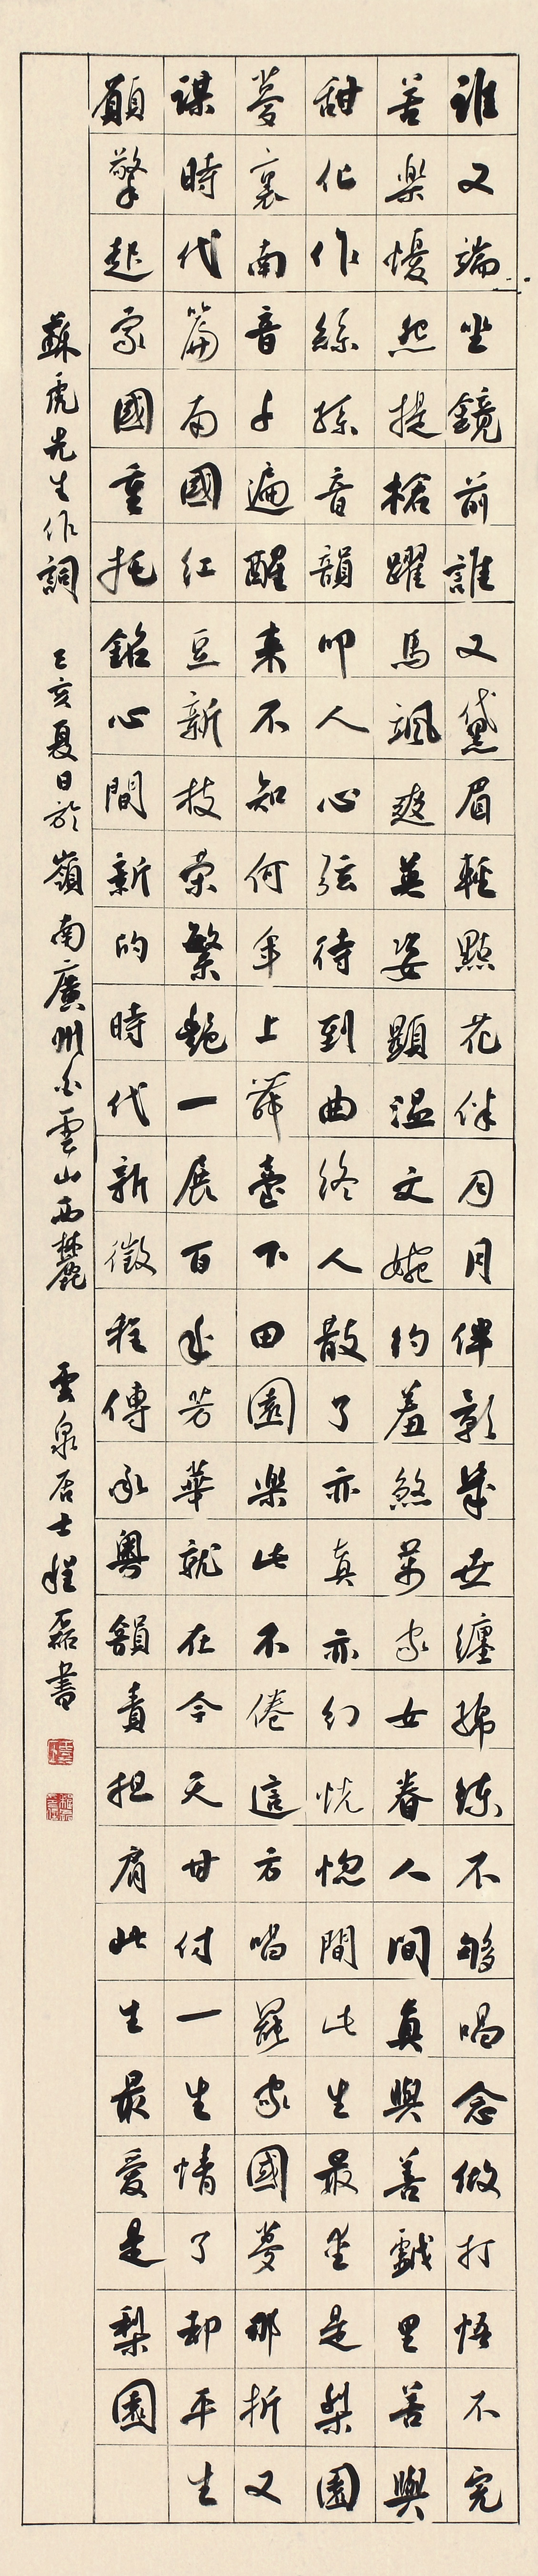 誰又端坐鏡前誰又黛眉輕點花伴月月伴影幾世纏綿練不够唱念做打悟不完
苦樂懮怨提槍躍馬颯爽英姿顯温文婉約羞煞萬家女眷人間真與善戲里苦與
甜化作絲絲音韻叩人心弦待到曲終人散了亦真亦幻恍惚間此生最愛是梨園
夢裏南音千遍醒来不知何年上舞臺下田園樂此不倦這方唱罷家國夢那折又
謀時代篇南國紅豆新枝榮繁艷一展百年芳華就在今天甘付一生情了却平生
願擎起家國重托銘心間新的時代新徵程傳承粵韻責担肩此生最愛是梨園
蘇虎先生作詞 己亥夏日於嶺南廣州白雲山西麓 雲泉居士程磊書